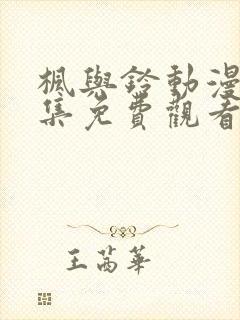 楓與鈴動漫
集免費觀看
王芮華